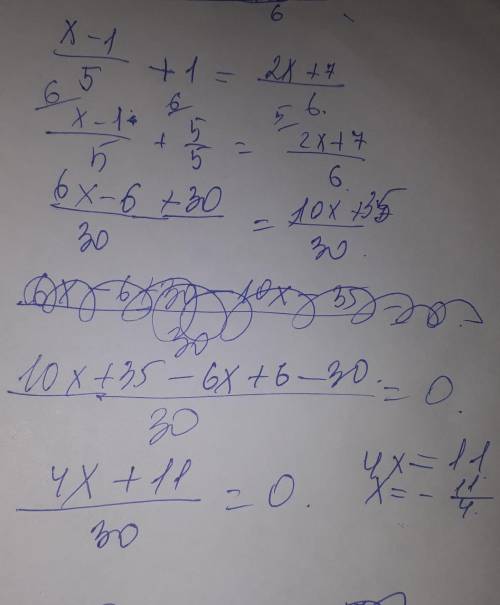 6
(x-1)/5 + 1 = (2x+7)/6.
6 6 5
(x-1)/5 + 5/5 = (2x+7)/6.
(6x-6+30)/30 = (10x+35)/30.
(10x+35-6x+6-30)/30 = 0.
(4x+11)/30 = 0.
4x=11
x=-11/4.